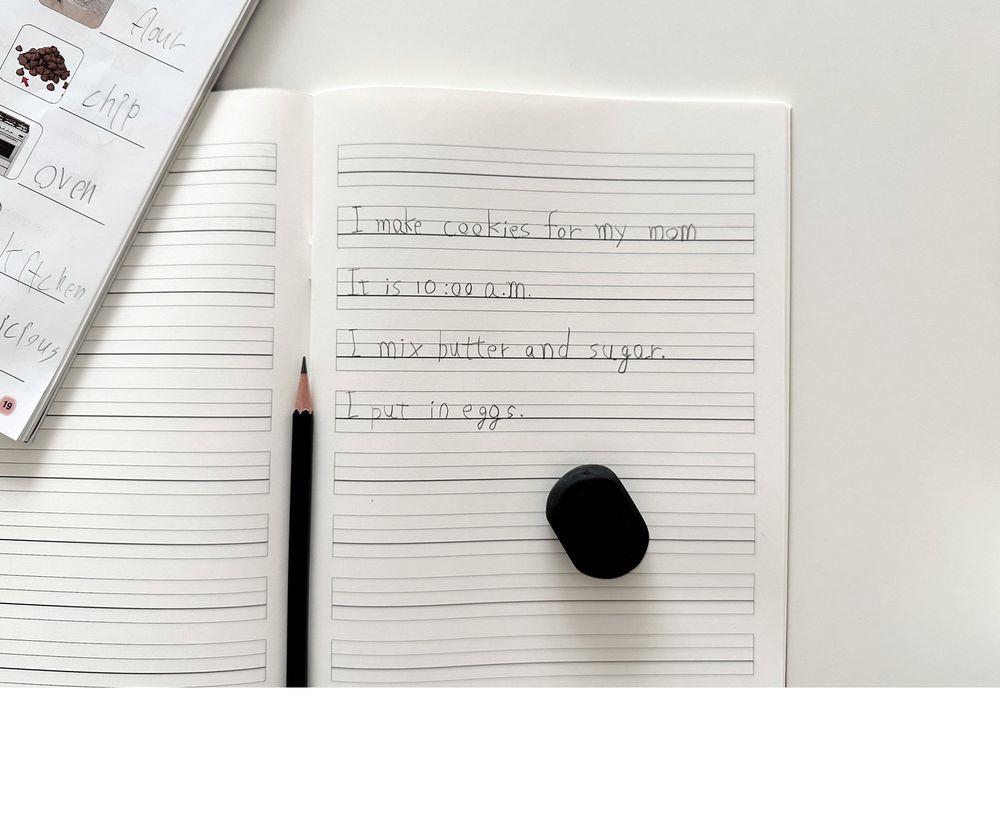 flour
chip
oven
kitchen
icious
19
I make cookies for my mom
It is 10:00 a.m.
I mix butter and sugar.
I put in eggs.